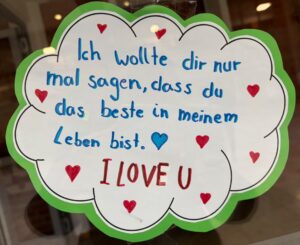 Ich wollte dir nur
mal sagen, dass du
das beste in meinem
Leben bist. 💙
I LOVE U